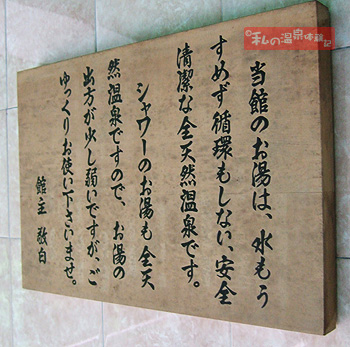 ©私の温泉体験記
当館のお湯は、水もう
すめず循環もしない、安全
清潔な全天然温泉です。
シャワーのお湯も全天
然温泉ですので、お湯の
出方が少し弱いですが、ご
ゆっくりお使い下さいませ。
館主 敬白